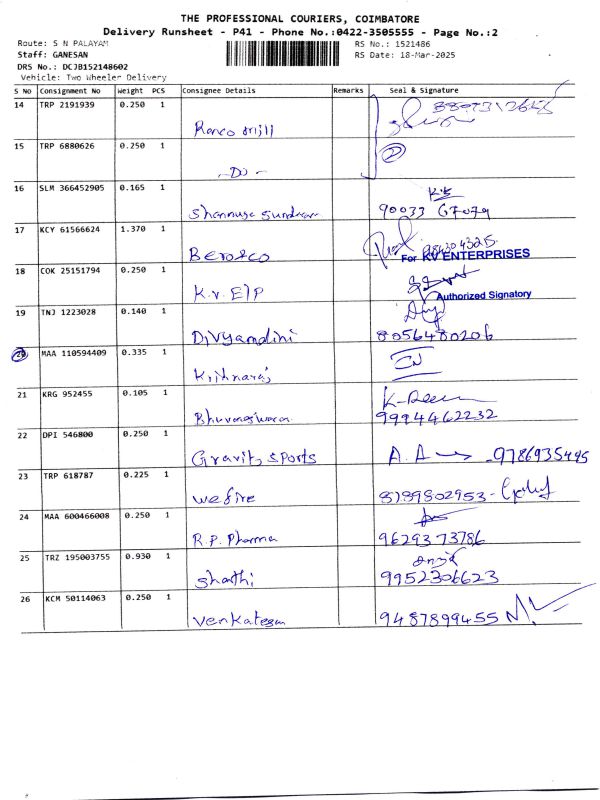 THE PROFESSIONAL COURIERS, COIMBATORE
Delivery Runsheet - P41 - Phone No.:0422-3505555 - Page No.:2
Route: S N PALAYAM
RS No.: 1521486
Staff: GANESAN
RS Date: 18-Mar-2025
DRS No.: DCJB152148602
Vehicle: Two Wheeler Delivery
S No Consignment No Weight PCS Consignee Details Remarks Seal & Signature
14 TRP 2191939 0.250 1
15 TRP 6880626 0.250 1
-Do-
16 SLM 366452905 0.165 1
Shanmuga Sundram 90033 67079
17 KCY 61566624 1.370 1
For KV ENTERPRISES
18 COK 25151794 0.250 1
K.V. E/P
Authorized Signatory
19 TNJ 1223028 0.140 1
Divyandini 8056480206
20 MAA 110594409 0.335 1
Krishnaraj
21 KRG 952455 0.105 1
9994462232
22 DPI 546800 0.250 1
Gravity Sports A. A 9786935495
23 TRP 618787 0.225 1
wefire 8189802953
24 MAA 600466008 0.250 1
R.P. Pharma 9629373786
25 TRZ 195003755 0.930 1
Shathi 9952306623
26 KCM 50114063 0.250 1
Venkatesan 9487899455